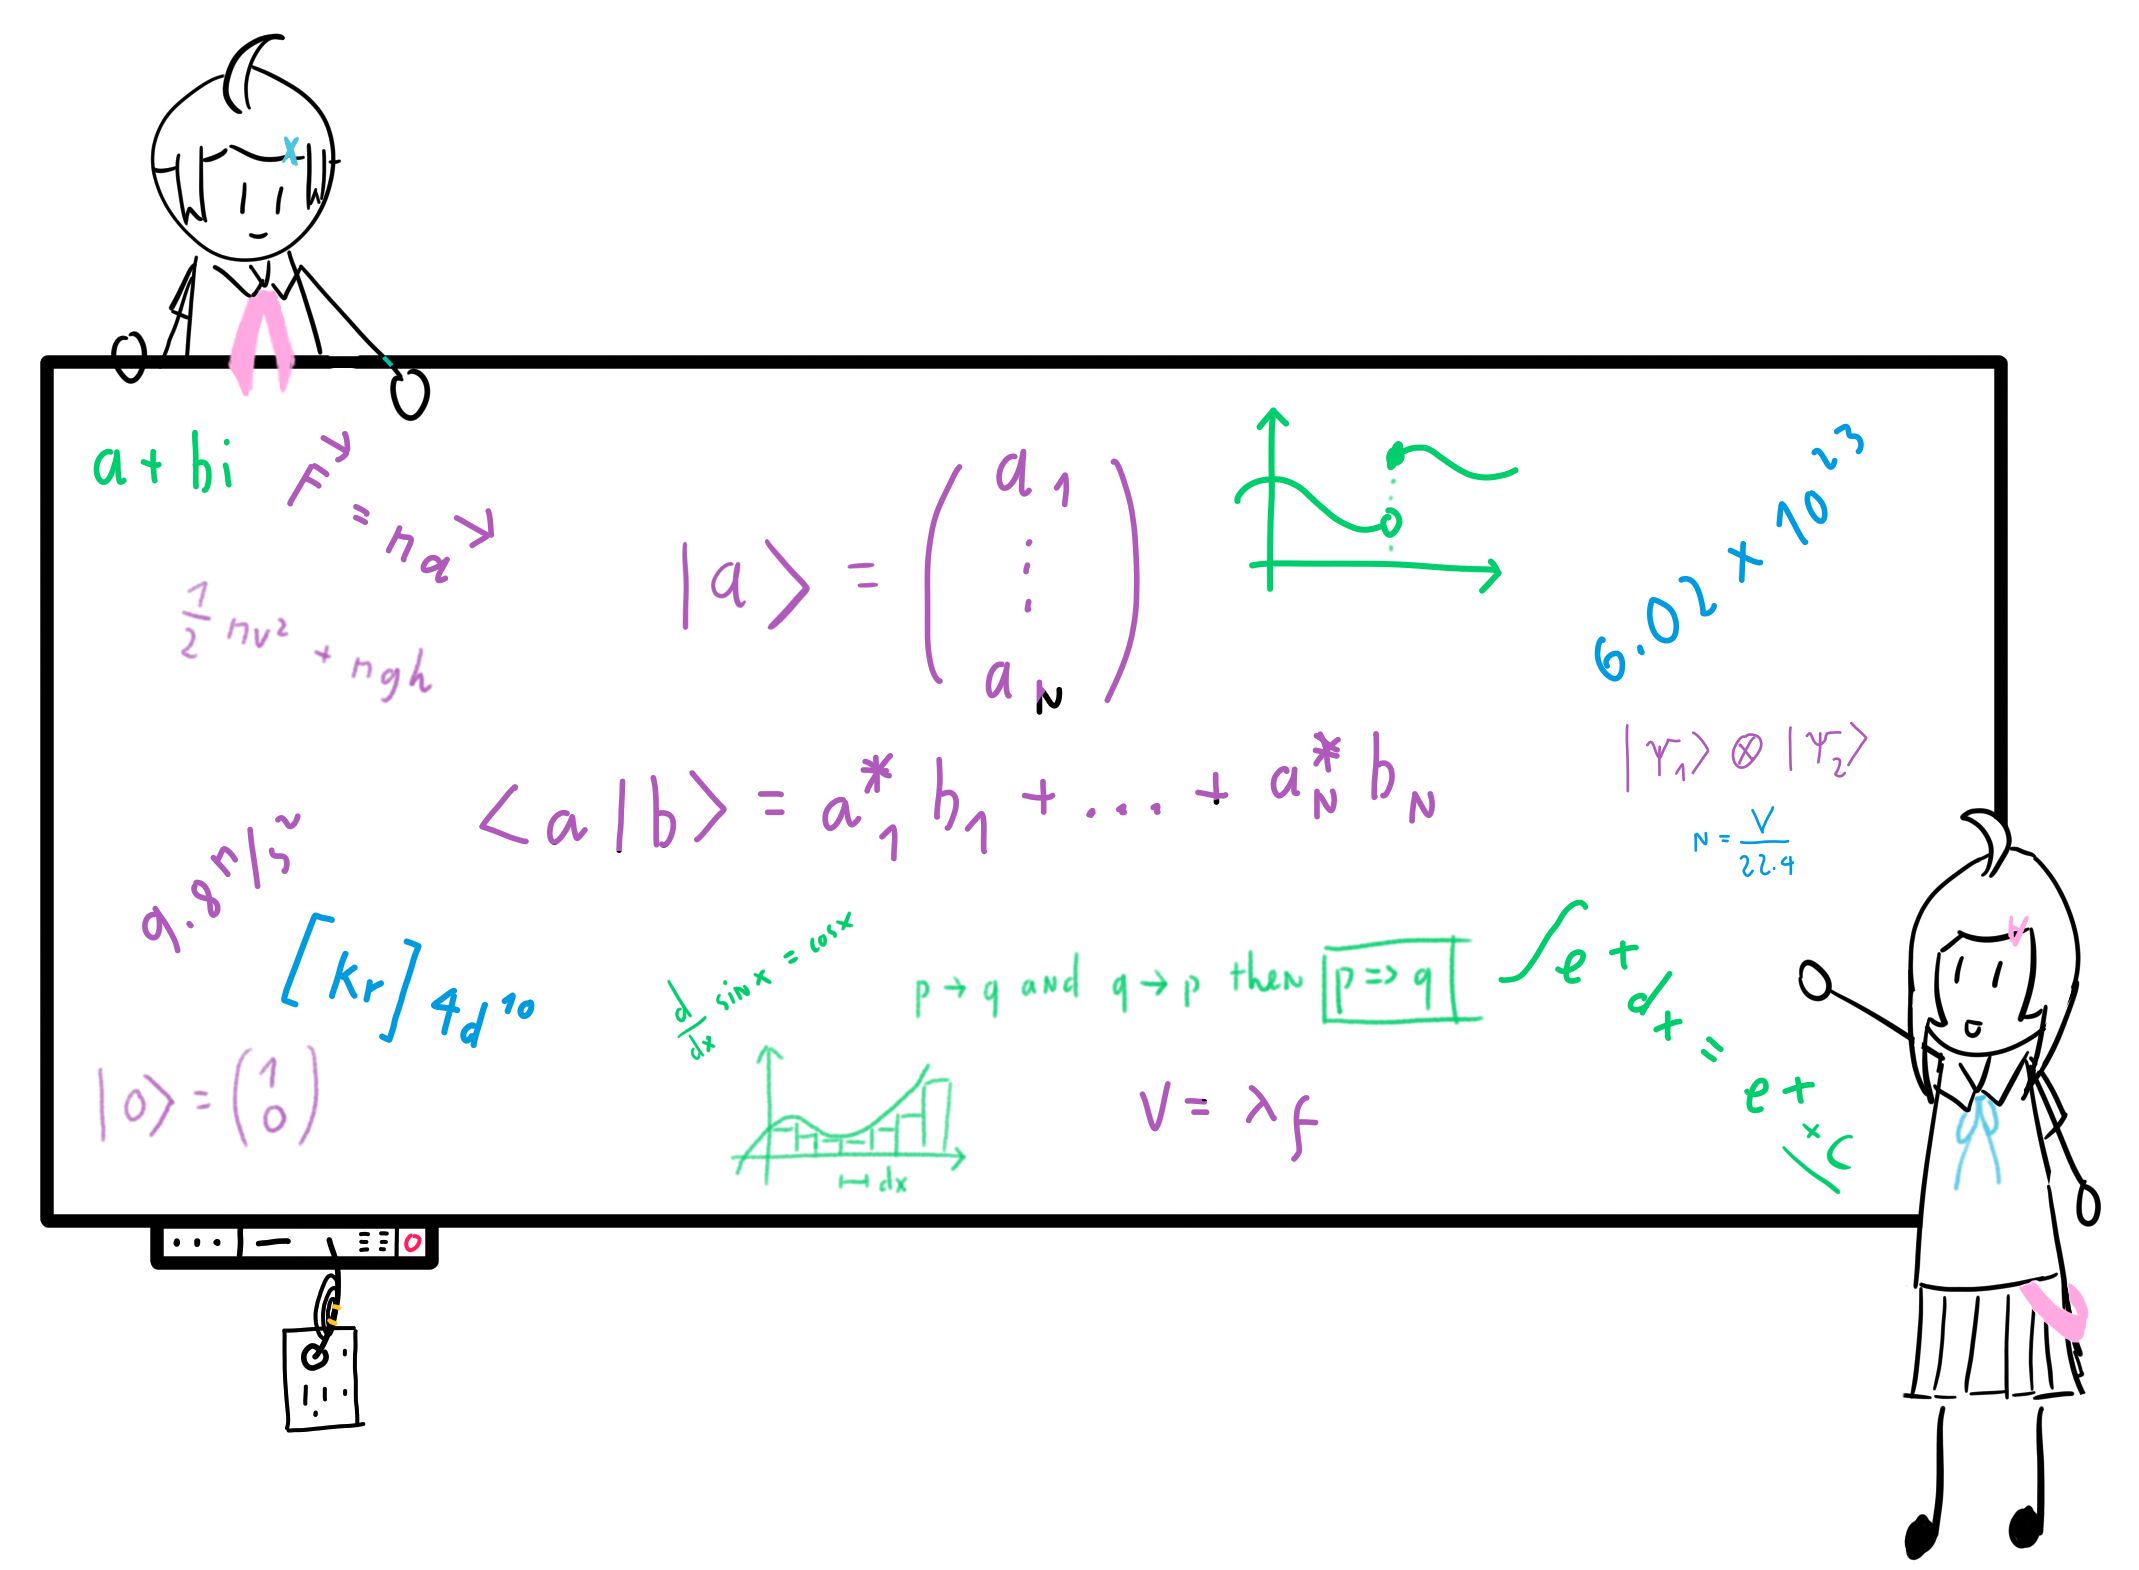 a + bi
F⃗ = ma⃗
1/2 mv² + mgh
|a⟩ = (a₁ ⋮ a_N)
6.02 × 10²³
⟨a|b⟩ = a*₁ b₁ + ... + a*_N b_N
|Ψ₁⟩ ⊗ |Ψ₂⟩
N = V/22.4
9.8 m/s²
[Kr] 4d¹⁰
d/dx sin x = cos x
p → q and q → p then p => q
∫ e^t dt = e^t + C
|0⟩ = (1 0)
dx
V = λf